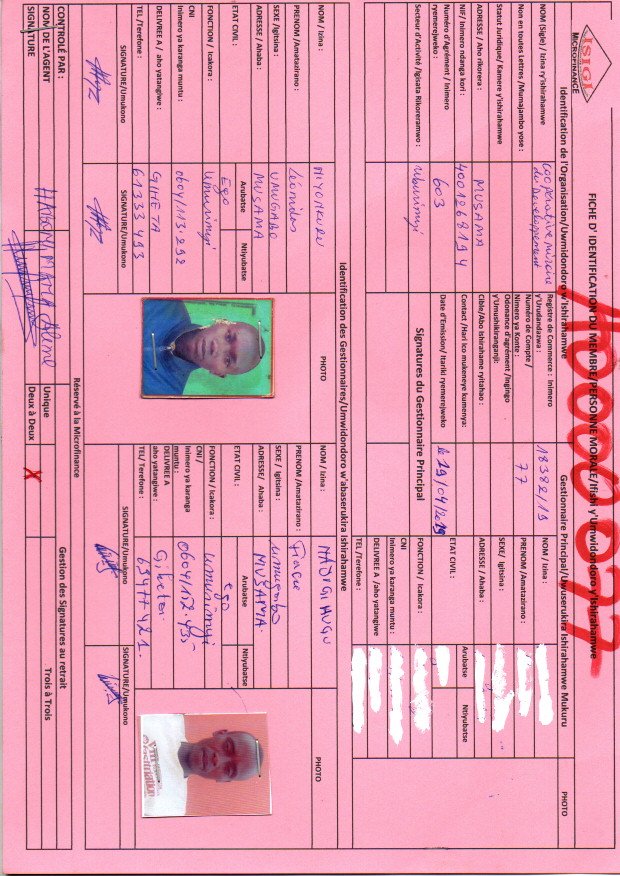 ISIGI
MICROFINANCE
FICHE D' IDENTIFICATION DU MEMBRE/PERSONNE MORALE/Ifishi y'Umwidondoro y'Ishirahamwe
Identification de l'Organisation/Umwidondoro w'Ishirahamwe
Gestionnaire Principal/Uwuserukira Ishirahamwe Mukuru
NOM (Sigle) / Izina ry'ishirahamwe
Cooperative mixte
Non en toutes Lettres /Mumajambo yose :
du Developpement
Statut Juridique/ Kamere y'ishirahamwe
ADRESSE / Aho rikorera :
MUSAMA
NIF/ Inimero ndanga kori :
4001268194
Numéro d'Agrément / Inimero
ryemerejweko :
603
Secteur d'Activité /Igisata Rikoreramwo :
Uburimyi
Registre de Commerce : Inimero
y'Urudandazwa :
18382/19
Numéro de Compte /
Nimero ya Konte :
77
Odonance d'agrément /Ingingo
y'Umushikiranganji:
Cible/Abo Ishirahame ryitaho :
Contact /Hari ico mukeneye kumenya:
Date d'Emission/ Itariki ryemerejweko
le 29/04/2019
Signatures du Gestionnaire Principal
NOM / Izina :
PRENOM/Amatazirano :
SEXE/ Igitsina :
ADRESSE / Ahaba :
ETAT CIVIL :
Arubatse
Ntiyubatse
FONCTION / Icakora :
CNI
Inimero ya karanga muntu :
DELIVREE A /aho yatangiwe
TEL /Terefone :
PHOTO
Identification des Gestionnaires/Umwidondoro w'abaserukira ishirahamwe
NOM / Izina :
NIYONKURU
PRENOM /Amatazirano :
Léonidas
SEXE /Igitsina :
UMUGABO
ADRESSE / Ahaba :
MUSAMA
ETAT CIVIL
Arubatse
Ntiyubatse
Ego
FONCTION / Icakora :
Umurimyi
CNI :
Inimero ya karanga muntu :
0604/113.292
DELIVREE A / aho yatangiwe :
GIHETA
TEL /Terefone :
61333493
SIGNATURE/Umukono
SIGNATURE/Umukono
PHOTO
NOM / Izina :
PRENOM /Amatazirano :
SEXE / Igitsina :
umugabo
ADRESSE/ Ahaba :
MUSAMA.
ETAT CIVIL :
Arubatse
Ntiyubatse
ego
FONCTION / Icakora :
umurimyi
CNI /
Inimero ya karanga
muntu :
DELIVREE A
aho yatangiwe :
Giheta.
TEL/ Terefone :
SIGNATURE/Umukono
SIGNATURE/Umukono
PHOTO
Réservé à la Microfinance
CONTRÔLÉ PAR :
NOM DE L'AGENT
SIGNATURE
Gestion des Signatures au retrait
Unique
Deux à Deux
X
Trois à Trois